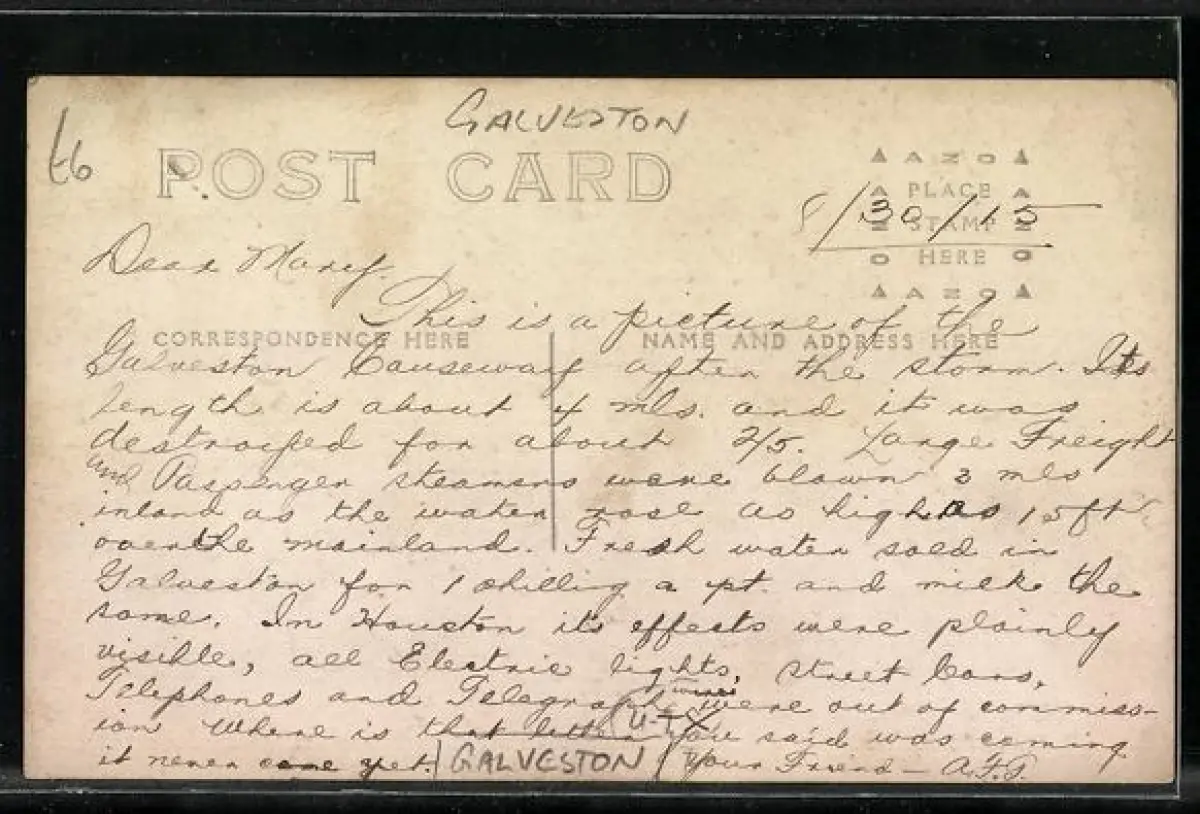 GALVESTON
POST CARD
▲ A Z O ▲
PLACE
8/30/15
STAMP
HERE
▲ A Z O ▲
Dear Mary.
This is a picture of the
CORRESPONDENCE HERE
NAME AND ADDRESS HERE
Galveston Causeway after the storm. Its
length is about 4 mls. and it was
destroyed for about 2/5. Large Freight
and Passenger steamers were blown 3 mls
inland as the water rose as high as 15 ft
over the mainland. Fresh water sold in
Galveston for 1 shilling a pt. and milk the
same. In Houston its effects were plainly
visible, all Electric lights, street Cars,
Telephones and Telegraph wires were out of commiss-
ion Where is that letter you said was coming
it never came yet. GALVESTON Your Friend – A.F.P.